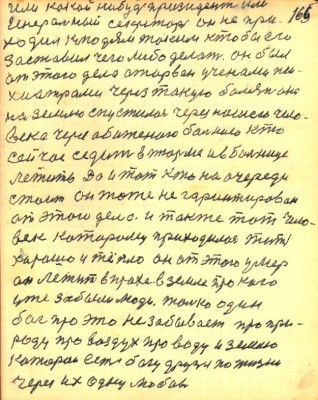 или какой нибудь президент или
Генеральный секретарь он не при- 166
ходил к людям таким кто бы его
заставил чего либо делать. он был
от этого дела оторван учеными пи-
хиатрами через такую болезнь она
на землю спустилася через нашего чело-
века через обиженого больного кто
сейчас седит в тюрме и в больнице
лежить Это и тот кто на очереди
стоит он тоже не гарантирован
от этого дела. и также тот чело-
век которому приходилося жить
харашо и тёпло он от этого умер
он лежит в прахе в земле про кого
уже забыли люди. толко один
бог про это не забывает про при-
роду про воздух про воду и землю
которые есть богу друзья по жизни
через их одну любов